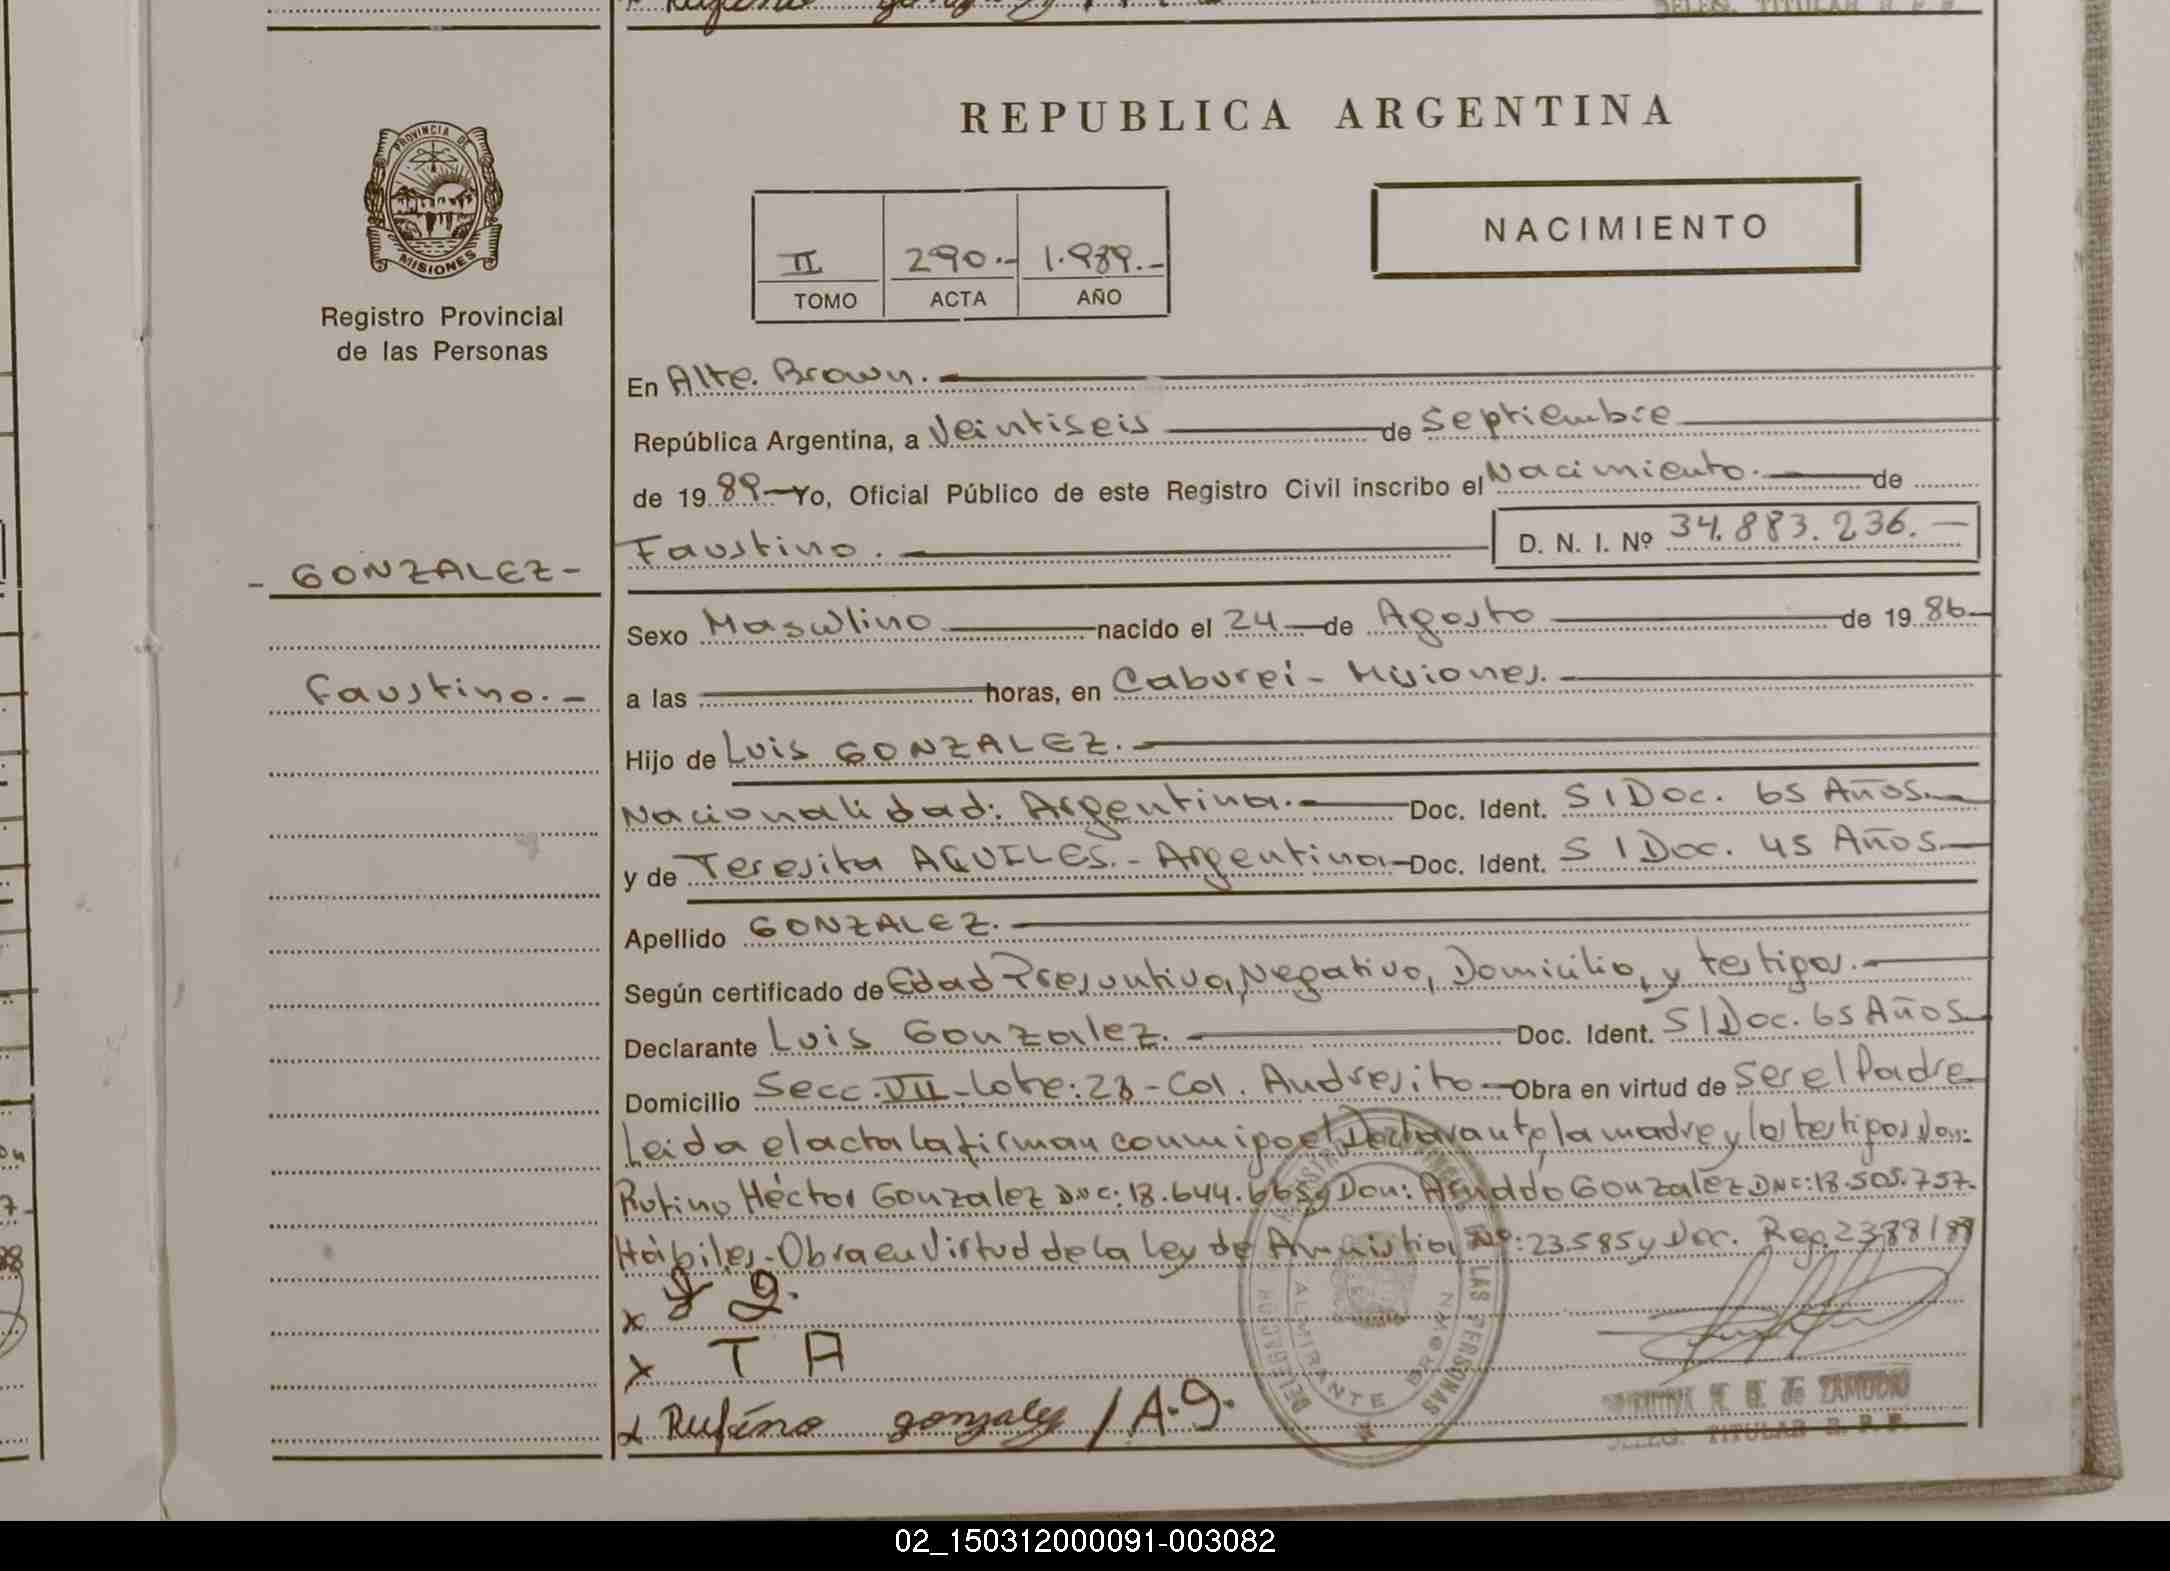 REPUBLICA ARGENTINA
PROVINCIA DE
MISIONES
Registro Provincial
de las Personas
II 290.- 1.989.-
TOMO ACTA AÑO
NACIMIENTO
En Alte. Brown.
República Argentina, a Veintiseis de Septiembre
de 19 89 Yo, Oficial Público de este Registro Civil inscribo el Nacimiento. de
Faustino. D. N. I. Nº 34.883.236.
- GONZALEZ -
Sexo Masculino nacido el 24 de Agosto de 19 86
Faustino.-
a las horas, en Caburei - Misiones.
Hijo de Luis GONZALEZ.
Nacionalidad: Argentina. Doc. Ident. S/Doc. 65 Años.
y de Teresita AQUILES.- Argentina Doc. Ident. S/Doc. 45 Años.
Apellido GONZALEZ.
Según certificado de Edad Presuntiva, Negativo, Domicilio, y testigos.
Declarante Luis Gonzalez. Doc. Ident. S/Doc. 65 Años
Domicilio Secc. VII - Lote: 28 - Col. Andresito Obra en virtud de ser el Padre
Leida el acta la firman conmigo el Declarante, la madre y los testigos Don:
Rufino Héctor Gonzalez DNC: 18.644.665 y Don: Arnaldo Gonzalez DNC: 18.505.757.
Hábiles - Obra en Virtud de la Ley de Amnistia Nº: 23.585 y Dec. Reg. 2388/88
x
x T A
x Rufino gonzalez / A.G.
ALMIRANTE BROWN
LAS PERSONAS
DE ZAMUDIO
DELEG. TITULAR R. P. P.
02_150312000091-003082